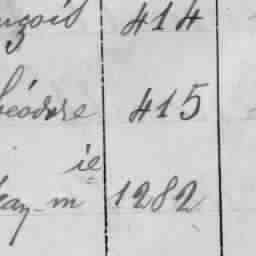 nçois 414
héodore 415
ie
Jean-m 1282